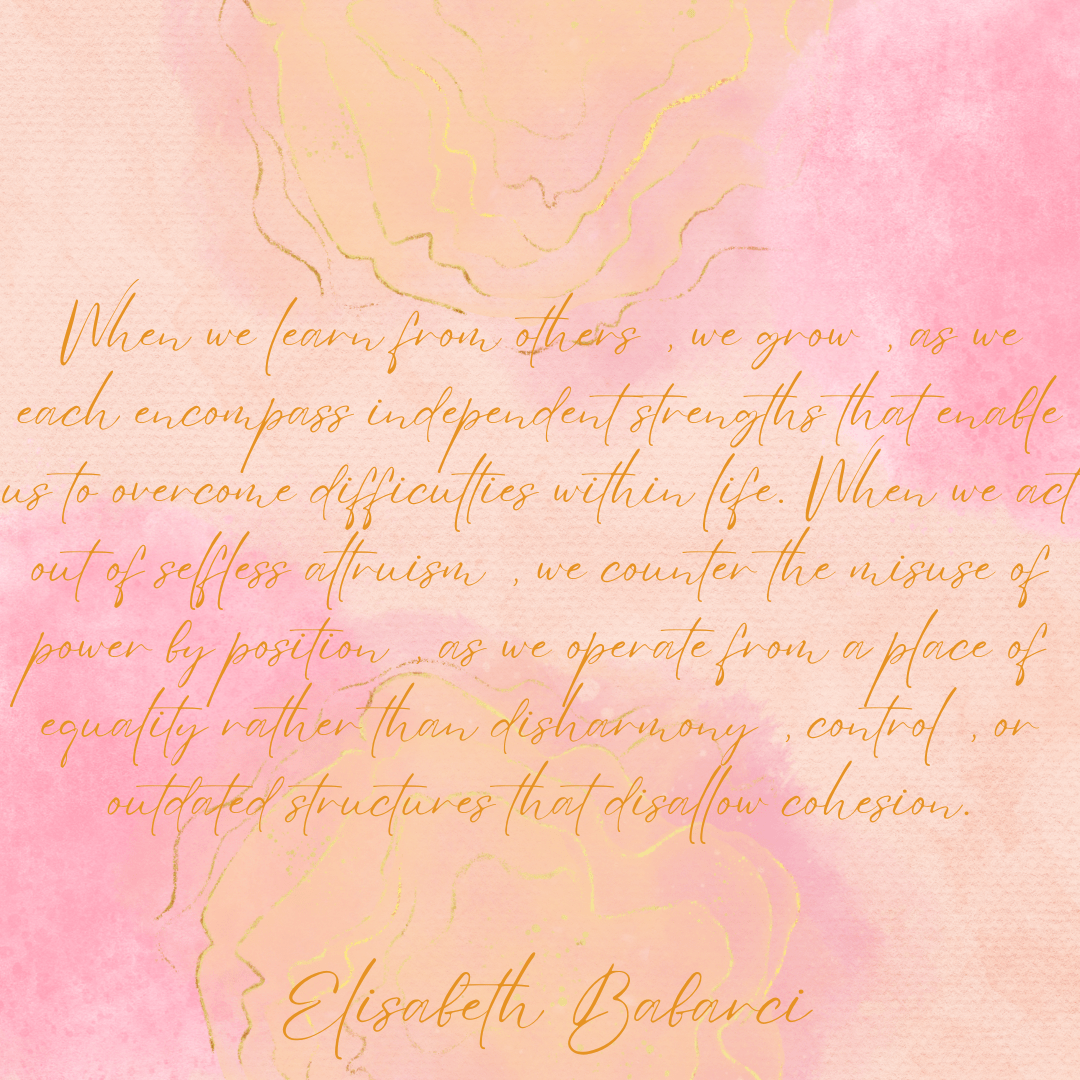 When we learn from others , we grow , as we
each encompass independent strengths that enable
us to overcome difficulties within life. When we act
out of selfless altruism , we counter the misuse of
power by position , as we operate from a place of
equality rather than disharmony , control , or
outdated structures that disallow cohesion.
Elisabeth Babarci